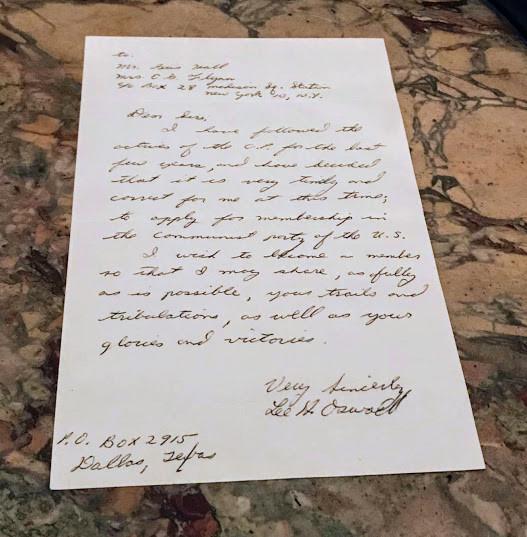 to:
Mr. Gus Hall
Mrs. E. G. Flynn
c/o Box 28 Madison Sq. Station
New York 10, N.Y.
Dear Sirs,
I have followed the
actives of the C.P. for the last
few years, and have decided
that it is very timly and
correct for me at this time;
to apply for membership in
the communist party of the U.S.
I wish to become a member
so that I may share, as fully
as is possible, your trails and
tribulations, as well as your
glories and victories.
Very Sincerely
Lee H. Oswald
P.O. BOX 2915
Dallas, Texas